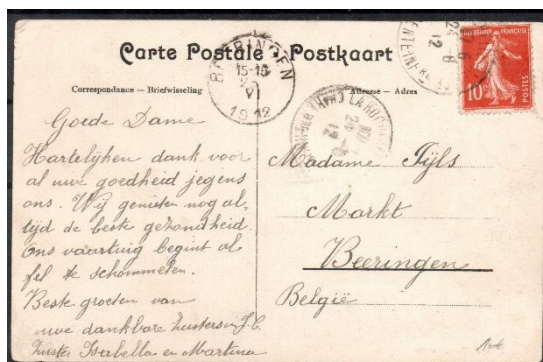 Carte Postale Postkaart
Correspondance — Briefwisseling
Adresse — Adres
BEERINGEN
15-16
25
VI
1912
REPUBLIQUE FRANÇAISE
10c
POSTES
24 - 6
12
LA ROCHELLE
24 - 6
12
Goede Dame
Hartelijken dank voor
al uwe goedheid jegens
ons. Wij genieten nog al,
tijd de beste gezondheid.
Ons vaartuig begint al
fel te schommelen.
Beste groeten van
uwe dankbare zusters in J.C.
zuster Isabella en Martina
Madame Tijls
Markt
Beeringen
België